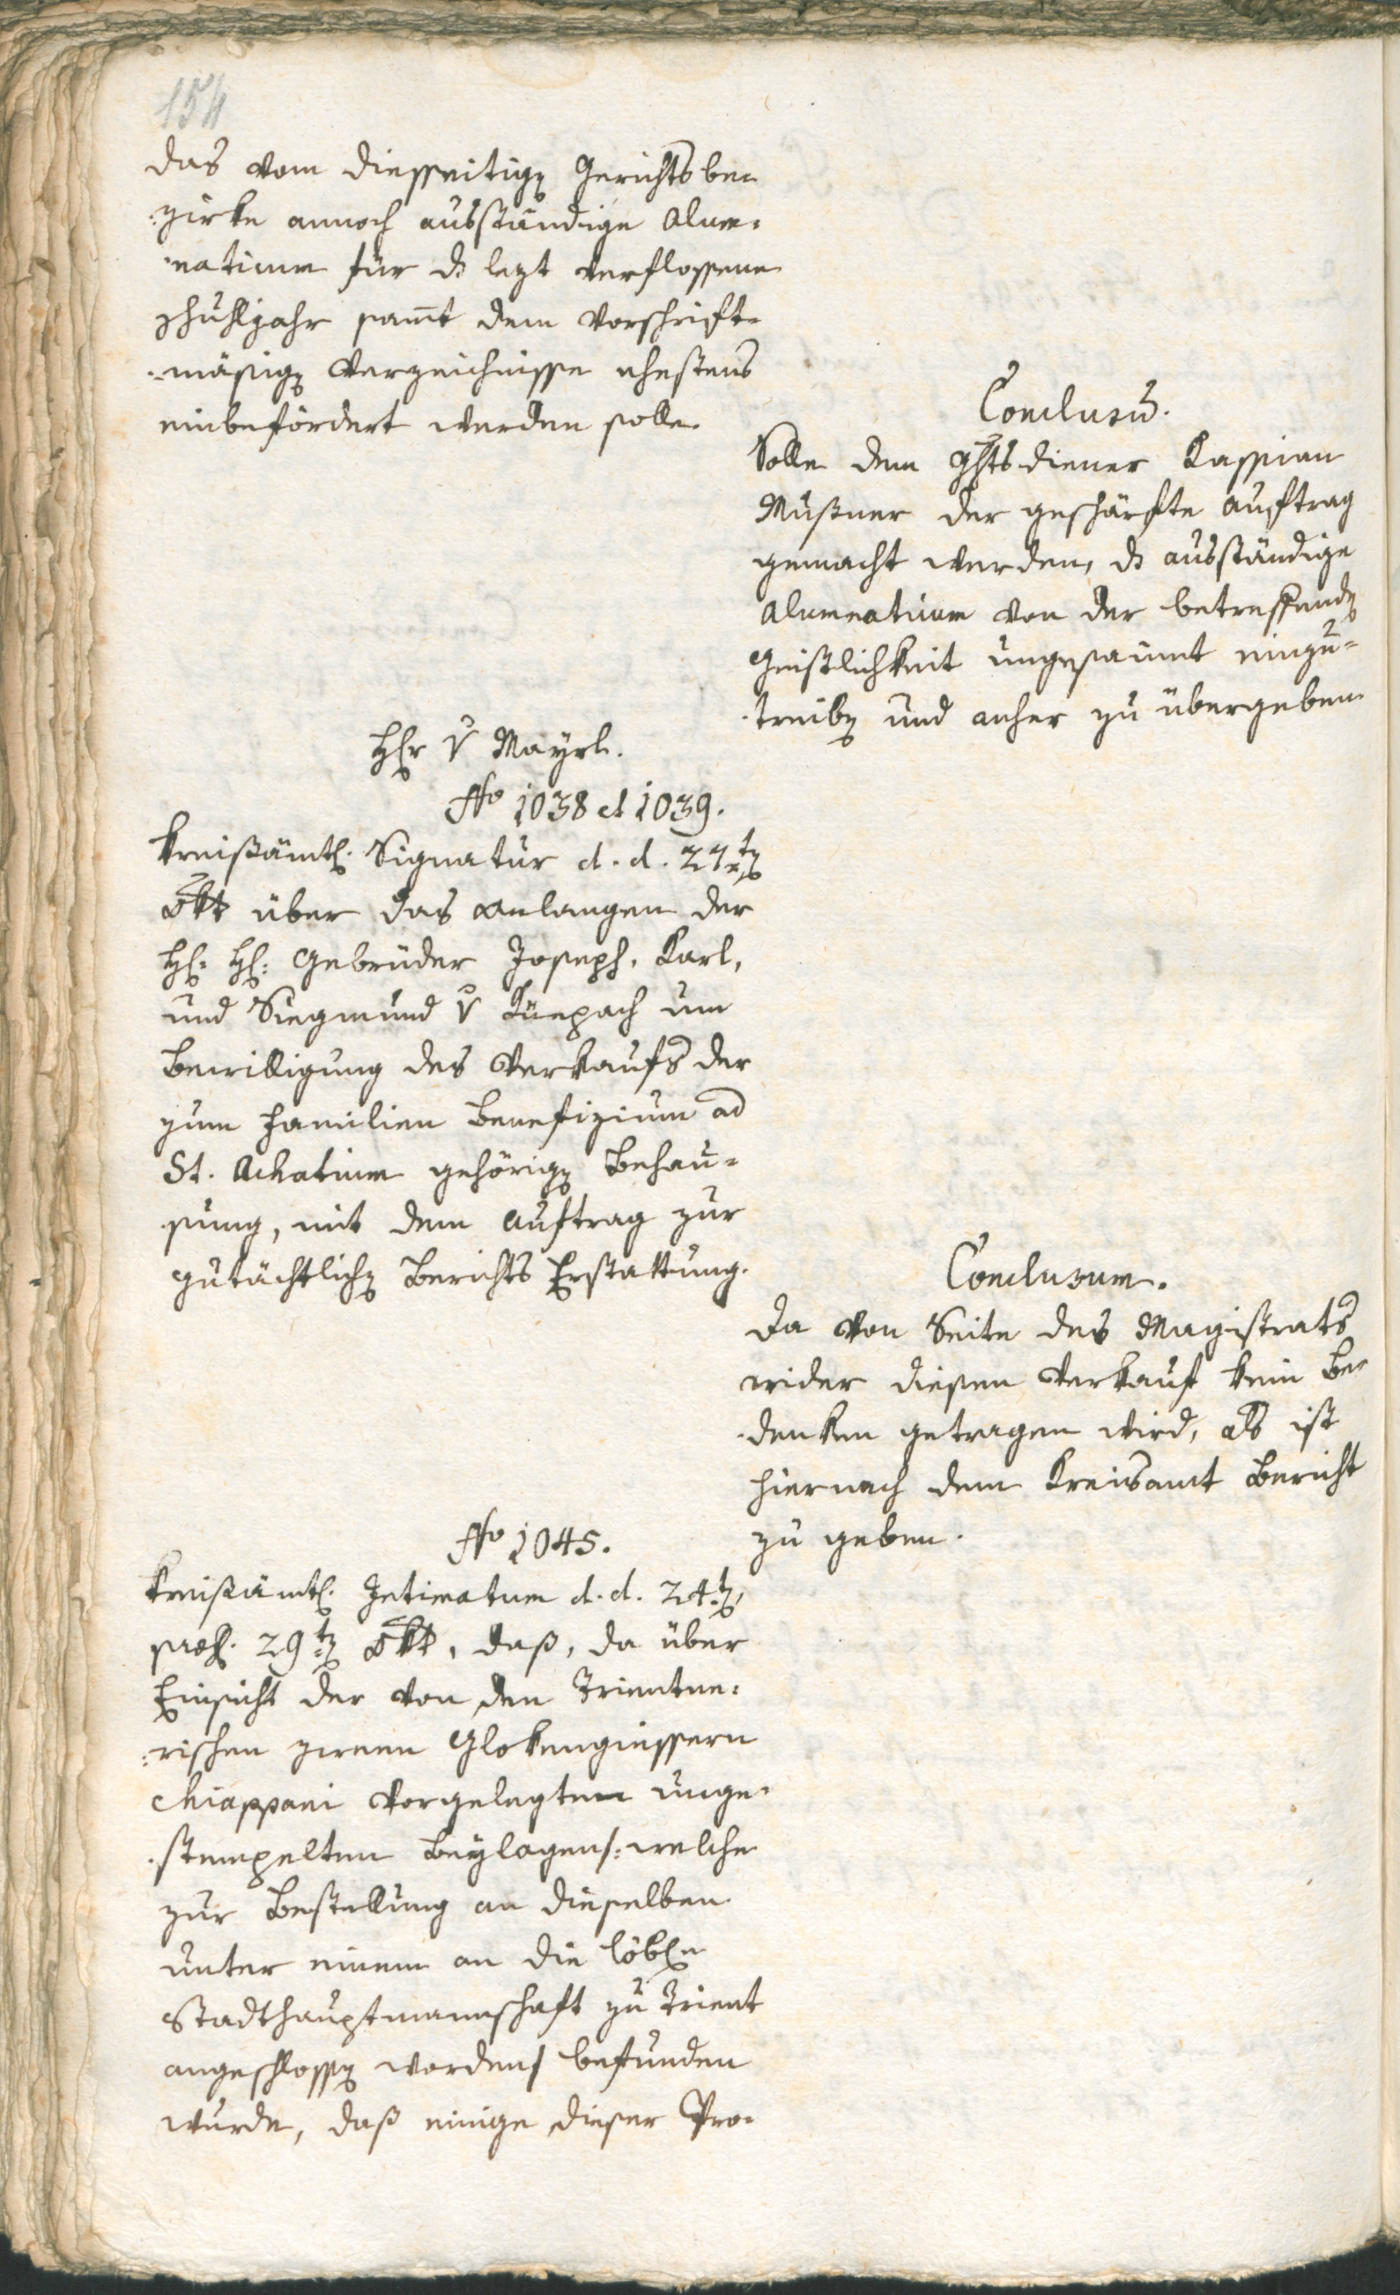 154
das vom diesseitigen Gerichtsbe-
:zirke annoch ausständige Alum-
:naticum für ds lezt verflossene
Schuhljahr sam̄t dem Vorschrift-
:mäsigen Verzeichnisse ehestens
einbefördert werden solle.
Conclusū.
Solle dem Ghtsdiener Kassian
Mußner der geschärfte Auftrag
gemacht werden, ds ausständige
Alumnaticum von der betreffenden
Geistlichkeit ungesäumt einzu-
:treiben und anher zu übergeben
Hr v Mayrl.
No 1038 et 1039.
Kreisämtl. Signatur d. d. 27ten
8br über das Anlangen der
H. H. Gebrüder Joseph, Karl,
und Siegmund v Küepach um
Bewilligung des Verkaufs der
zum Familien Benefizium ad
St. Achatium gehörigen Behau-
sung, mit dem Auftrag zur
gutächtlichen Berichts Erstattung.
Conclusum.
Da von Seite des Magistrats
wider diesen Verkauf kein Be-
:denken getragen wird, als ist
hiernach dem Kreisamt Bericht
zu geben.
No 1045.
Kreisämtl. Intimatum d. d. 24ten,
praes. 29ten 8br, daß, da über
Einsicht der von den Trientne-
:rischen zween Glokengiessern
Chiappani vorgelegten unge-
:stempelten Beylagen /: welche
zur Bestellung an dieselben
unter einem an die löbln
Stadthauptmannschaft zu Trient
angeschlossen worden / befunden
wurde, daß einige dieser Pro-